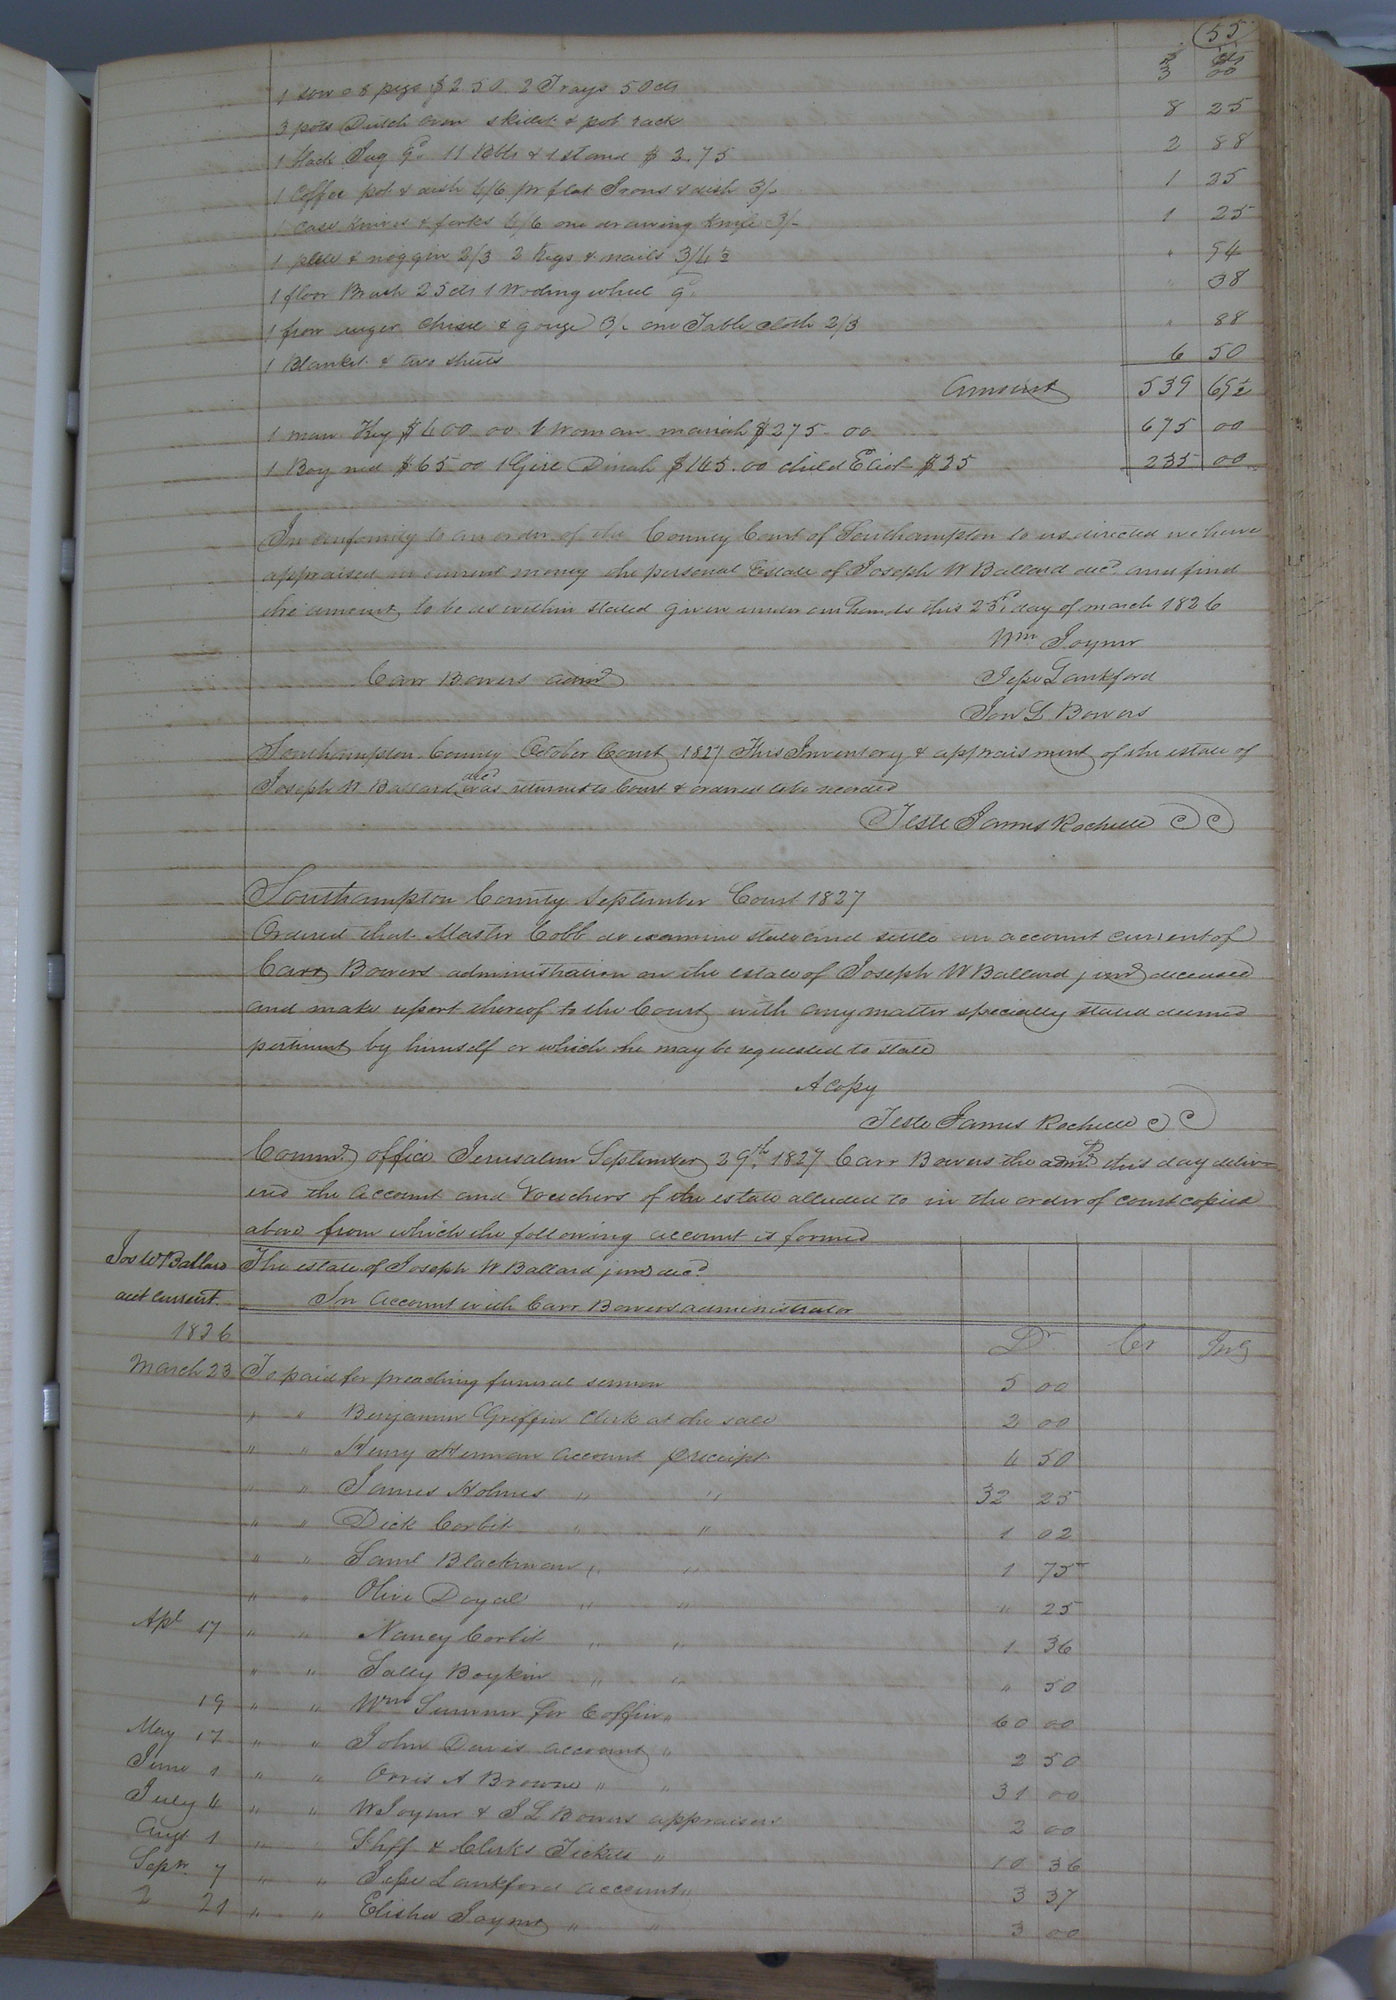 55
$ cts
1 sow & 8 pigs $2.50. 2 Trays 50cts 3 00
3 pots Dutch oven skillet & pot rack 8 25
1 Jug 11 & 1 stand $ 2.75 2 88
1 Coffee pot & dish 4/6 pr flat Irons & dish 3/- 1 25
1 case knives & forks 4/6 one drawing knife 3/- 1 25
1 & noggin 2/3 2 Kegs & nails 3/4½ " 94
1 floor Brush 25cts 1 wheel " 38
1 frow auger chisel & gouge 3/- one Table cloth 2/3 " 88
1 Blanket & two sheets 6 50
Amount 539 69½
1 man $400 00 1 Woman mariah $275 00 675 00
1 Boy ned $65 00 1 Girl Dinah $145.00 child $25 235 00
In conformity to an order of the County Court of Southampton to us directed we have
appraised in current money the personal Estate of Joseph W Ballard decd. and find
the amount to be as within stated given under our hands this 23rd day of march 1826
Wm Joyner
Carr Bowers admr
Jesse Lankford
L Bowers
Southampton County October Court 1827 This Inventory & appraisment of the estate of
Joseph W Ballard decd was returned to Court & ordered to be recorded
Teste James Rochelle CC
Southampton County September Court 1827
Ordered that Master Cobb do examine state and settle an account current of
Carr Bowers administration on the estate of Joseph W Ballard junr deceased
and make report thereof to the Court with any matter specially stated deemed
pertinent by himself or which he may be requested to state
A copy
Teste James Rochelle CC
Commrs office Jerusalem September 29th. 1827 Carr Bowers the admr this day deliv-
ered the Account and Vouchers of the estate alluded to in the order of court copied
above from which the following account is formed
Jos W Ballard The estate of Joseph W Ballard junr decd.
act current. In Account with Carr Bowers administrator
1826 Dr. Cr Int
March 23 To paid for preaching funeral sermon 5 00
" " Benjamin Griffin Clerk at the sale 2 00
" " Henry account & receipt 4 50
" " James Holmes " " 32 25
" " Dick Corbit " " 1 02
" " Saml Blackman " " 1 75
" " Olive Doyal " " " 25
Apl 17 " " Nancy Corbit " " 1 36
" " Sally Boykin " " " 50
19 " " Wm Sumner for Coffin " 60 00
May 17 " " John Davis account " 2 50
June 1 " " Orris A Browne " " 31 00
July 4 " " W Joyner & J L Bowers appraisers 2 00
Augt 1 " " Shff & Clerks Tickets " 10 36
Sepr. 7 " " Jesse Lankford account " 3 37
2 21 " " Elisha Joyner " " 3 00